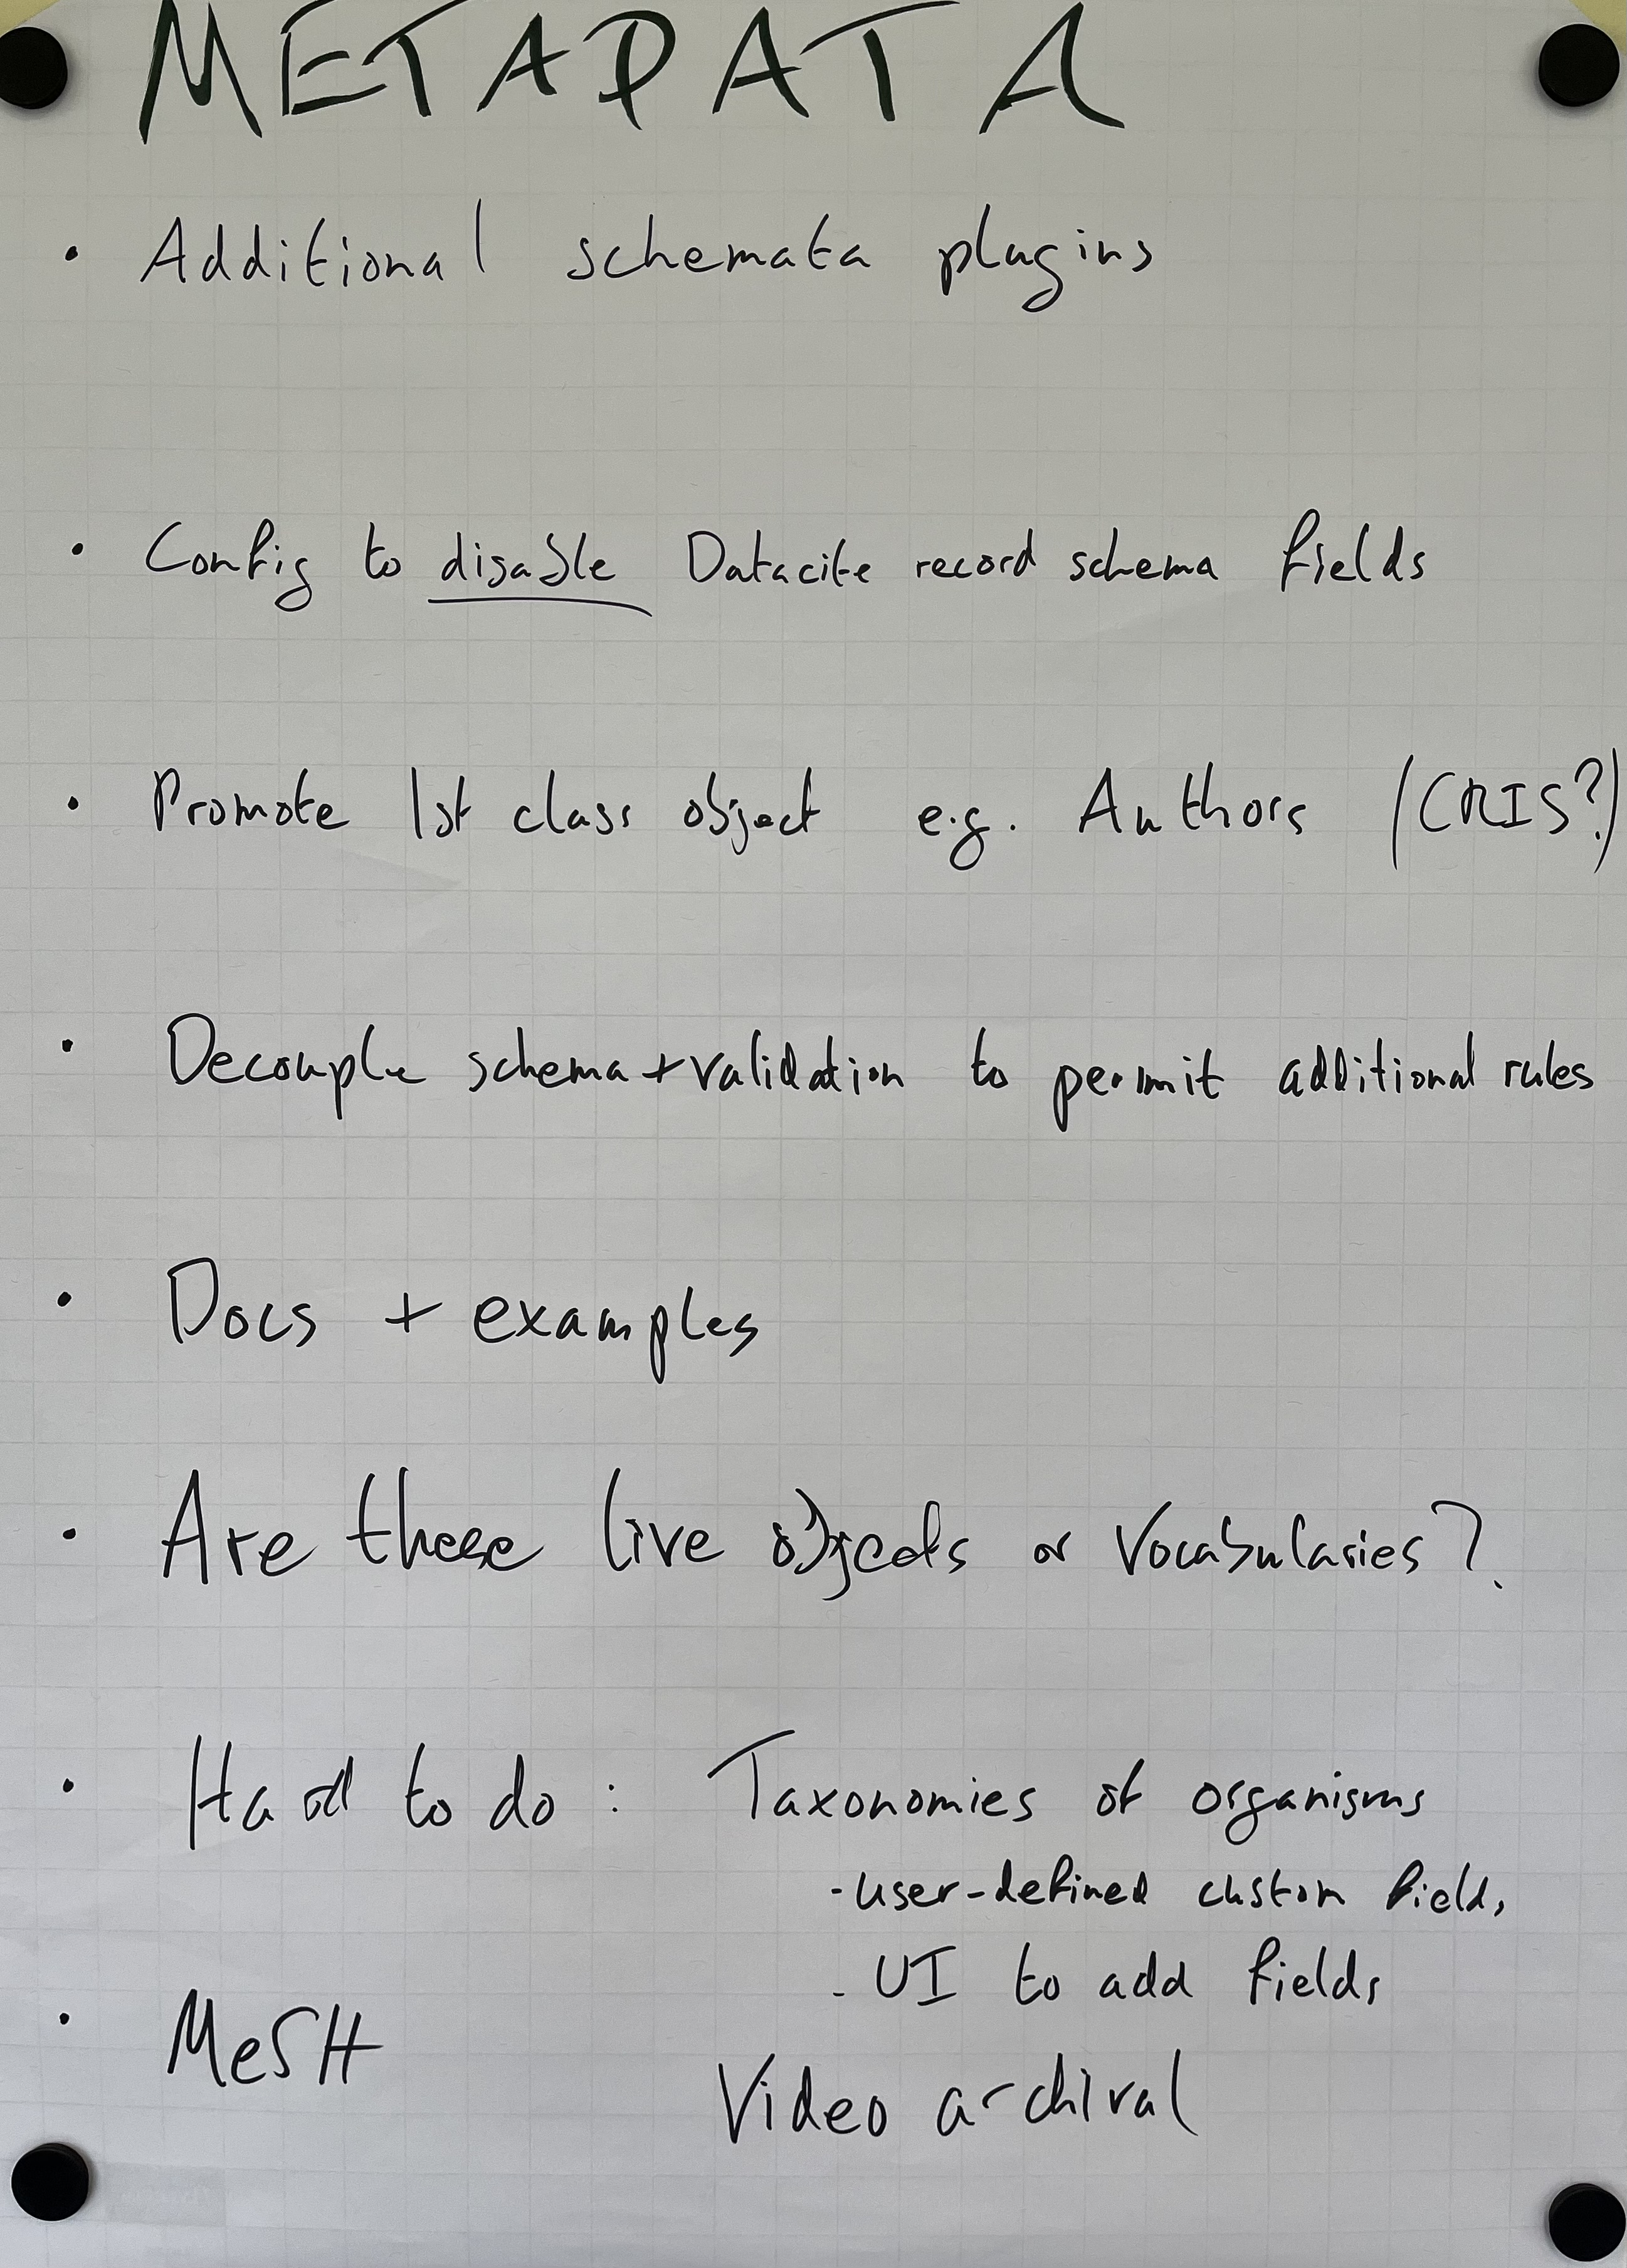 METADATA
• Additional schemata plugins
• Config to disable Datacite record schema fields
• Promote 1st class object e.g. Authors (CRIS?)
• Decouple schema + validation to permit additional rules
• Docs + examples
• Are these live objects or Vocabularies?
• Hard to do : Taxonomies of organisms
- user-defined custom fields
- UI to add fields
• MeSH
Video archival